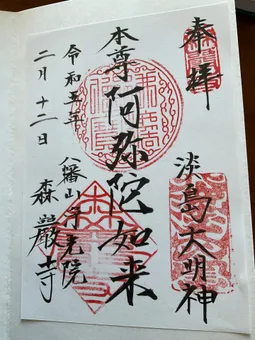 奉拝
淡島大明神
本尊 阿弥陀如来
令和五年
二月十二日
八幡山浄光院
森巖寺